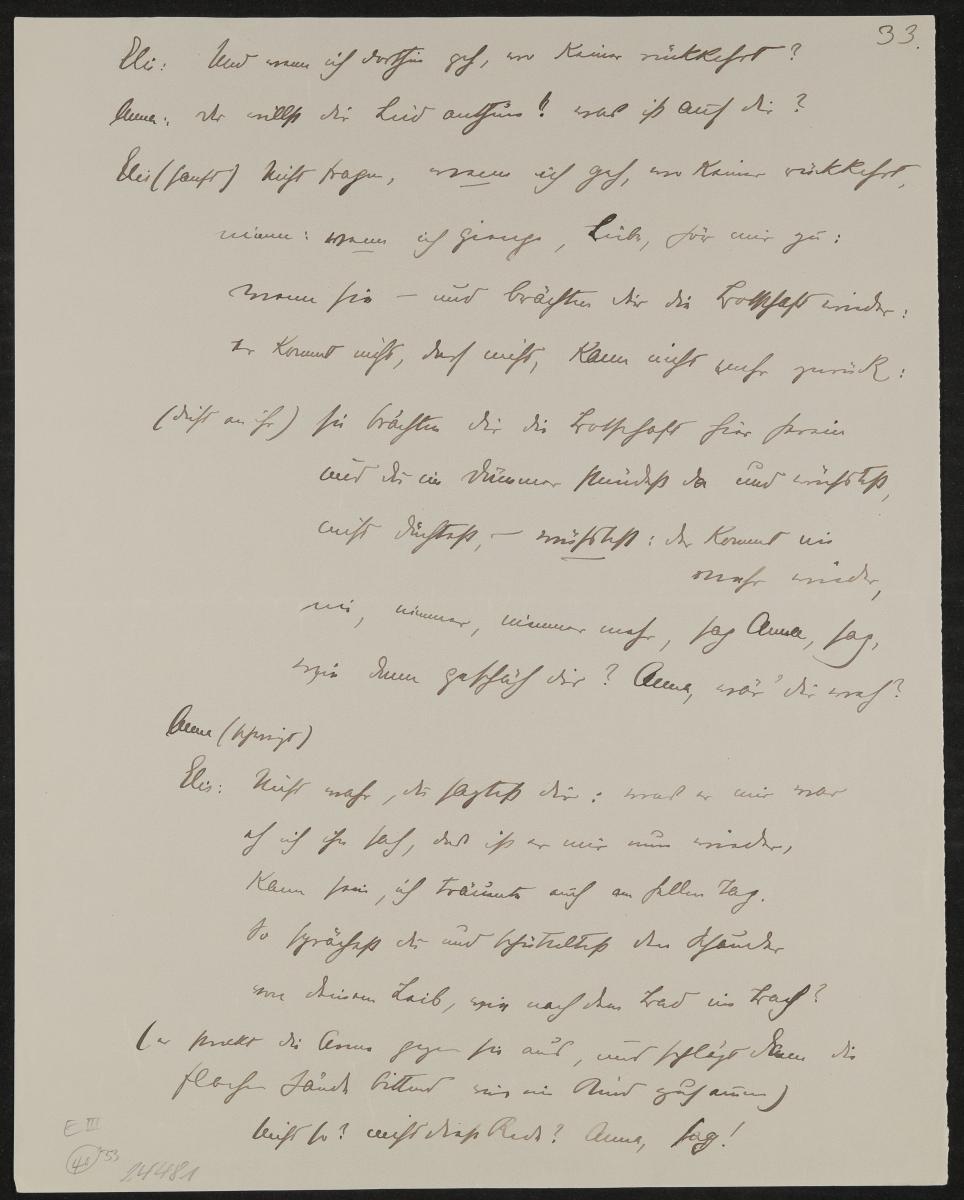 33.
Elis: Und wenn ich dorthin geh, wo Keiner rückkehrt?
Anna: du willst dir Leid anthun! was ist auf dir?
Elis (sanft) Nicht fragen, wenn ich geh, wo Keiner rückkehrt,
nimm: wenn ich gienge, Liebe, hör mir zu:
wenn sie – und brächten dir die Botschaft wieder:
er kommt nicht, darf nicht, kann nicht mehr zurück:
(dicht an ihr) sie brächten dir die Botschaft hier herein
und du im Dümmer stündest da und wüsstest,
nicht dächtest, – wüsstest: der kommt nie
mehr wieder,
nie, nimmer, nimmer mehr, sag Anna, sag,
wie denn geschäh dir? Anna, wär' dir weh?
Anna (schweigt)
Elis: Nicht wahr, du sagtest dir: was er mir war
eh ich ihn sah, das ist er mir nun wieder,
kann sein, ich träumte auch am hellen Tag.
So sprächest du und schütteltest den Schauder
von deinem Leib, wie nach dem Bad im Bach?
(er streckt die Arme gegen sie aus, und schlägt dann die
flachen Hände bittend wie ein Kind zusammen)
Nicht so? nicht diese Rede? Anna, sag!
E III
53
24481